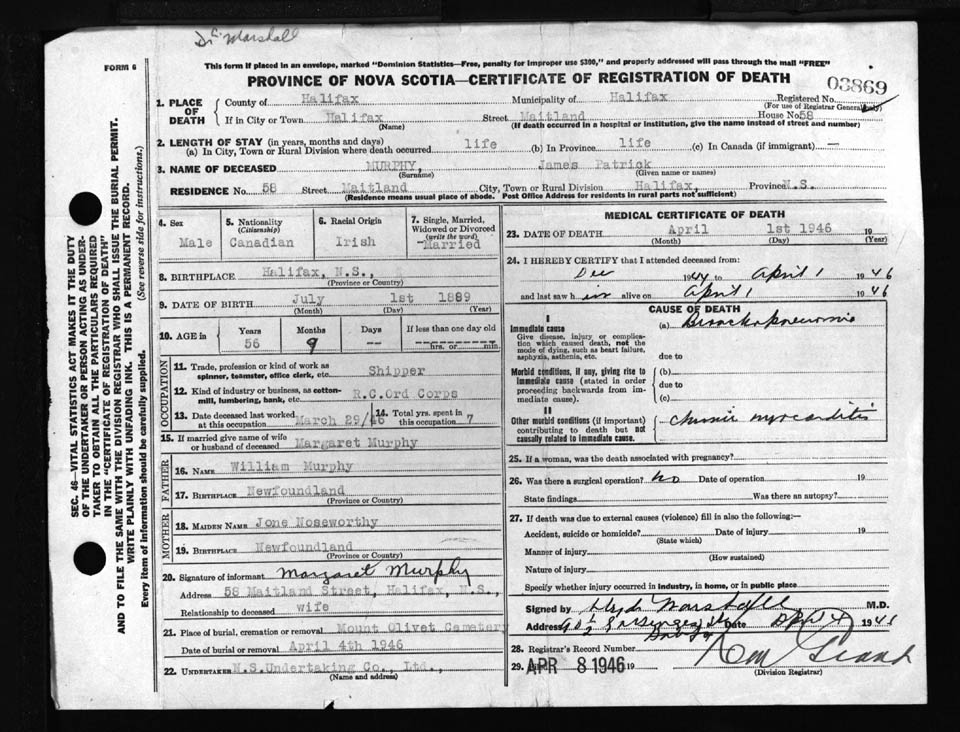 Dr. Marshall
FORM 6
This form if placed in an envelope, marked "Dominion Statistics—Free, penalty for improper use $300," and properly addressed will pass through the mail "FREE"
PROVINCE OF NOVA SCOTIA—CERTIFICATE OF REGISTRATION OF DEATH
03869
1. PLACE OF DEATH
County of Halifax Municipality of Halifax Registered No.
(For use of Registrar General only)
If in City or Town Halifax Street Maitland House No 58
(Name) (If death occurred in a hospital or institution, give the name instead of street and number)
2. LENGTH OF STAY (in years, months and days)
(a) In City, Town or Rural Division where death occurred life (b) In Province life (c) In Canada (if immigrant) —
3. NAME OF DECEASED MURPHY, James Patrick
(Surname) (Given name or names)
RESIDENCE No. 58 Street Maitland City, Town or Rural Division Halifax, Province N.S.
(Residence means usual place of abode. Post Office Address for residents in rural parts not sufficient)
4. Sex
Male
5. Nationality (Citizenship)
Canadian
6. Racial Origin
Irish
7. Single, Married, Widowed or Divorced (write the word)
Married
8. BIRTHPLACE Halifax, N.S.,
(Province or Country)
9. DATE OF BIRTH July 1st 1889
(Month) (Day) (Year)
10. AGE in
Years Months Days If less than one day old
56 9 — hrs. or min.
OCCUPATION
11. Trade, profession or kind of work as spinner, teamster, office clerk, etc. Shipper
12. Kind of industry or business, as cotton-mill, lumbering, bank, etc. R.C.Ord Corps
13. Date deceased last worked at this occupation March 29/46
14. Total yrs. spent in this occupation 7
15. If married give name of wife or husband of deceased Margaret Murphy
FATHER
16. NAME William Murphy
17. BIRTHPLACE Newfoundland
(Province or Country)
MOTHER
18. MAIDEN NAME Jone Noseworthy
19. BIRTHPLACE Newfoundland
(Province or Country)
20. Signature of informant Margaret Murphy
Address 58 Maitland Street, Halifax, N.S.,
Relationship to deceased wife
21. Place of burial, cremation or removal Mount Olivet Cemetery
Date of burial or removal April 4th 1946
22. UNDERTAKER N.S.Undertaking Co., Ltd.,
(Name and address)
MEDICAL CERTIFICATE OF DEATH
23. DATE OF DEATH April 1st 1946 19
(Month) (Day) (Year)
24. I HEREBY CERTIFY that I attended deceased from:
Dec 1944 to April 1 1946
and last saw him alive on April 1 1946
CAUSE OF DEATH
I
Immediate cause (a) Bronchopneumonia
Give disease, injury or complication which caused death, not the mode of dying, such as heart failure, asphyxia, asthenia, etc. due to
Morbid conditions, if any, giving rise to immediate cause (stated in order proceeding backwards from immediate cause). (b)
due to
(c)
II
Other morbid conditions (if important) contributing to death but not causally related to immediate cause. Chronic myocarditis
25. If a woman, was the death associated with pregnancy?
26. Was there a surgical operation? no Date of operation 19
State findings Was there an autopsy?
27. If death was due to external causes (violence) fill in also the following:—
Accident, suicide or homicide? Date of injury 19
(State which)
Manner of injury
(How sustained)
Nature of injury
Specify whether injury occurred in industry, in home, or in public place
Signed by Marshall M.D.
Address Date 19
28. Registrar's Record Number
29. APR 8 1946 19
(Division Registrar)
SEC. 46—VITAL STATISTICS ACT MAKES IT THE DUTY
OF THE UNDERTAKER OR PERSON ACTING AS UNDER-
TAKER TO OBTAIN ALL THE PARTICULARS REQUIRED
IN THE "CERTIFICATE OF REGISTRATION OF DEATH"
AND TO FILE THE SAME WITH THE DIVISION REGISTRAR WHO SHALL ISSUE THE BURIAL PERMIT.
WRITE PLAINLY WITH UNFADING INK. THIS IS A PERMANENT RECORD.
Every item of information should be carefully supplied. (See reverse side for instructions.)